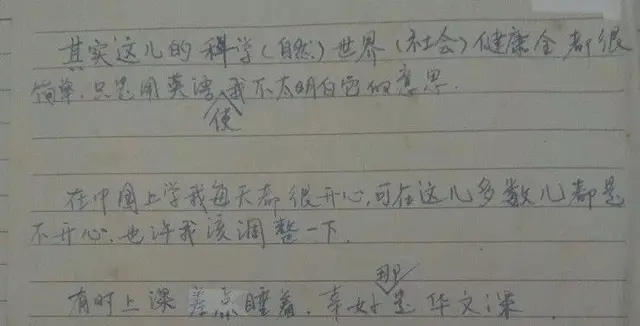 其实这儿的科学(自然)世界(社会)健康全都很
简单.只是用英语使我不太明白它的意思.
在中国上学我每天都很开心,可在这儿多数儿都是
不开心.也许我该调整一下.
有时上课差点睡着.幸好那是华文课.